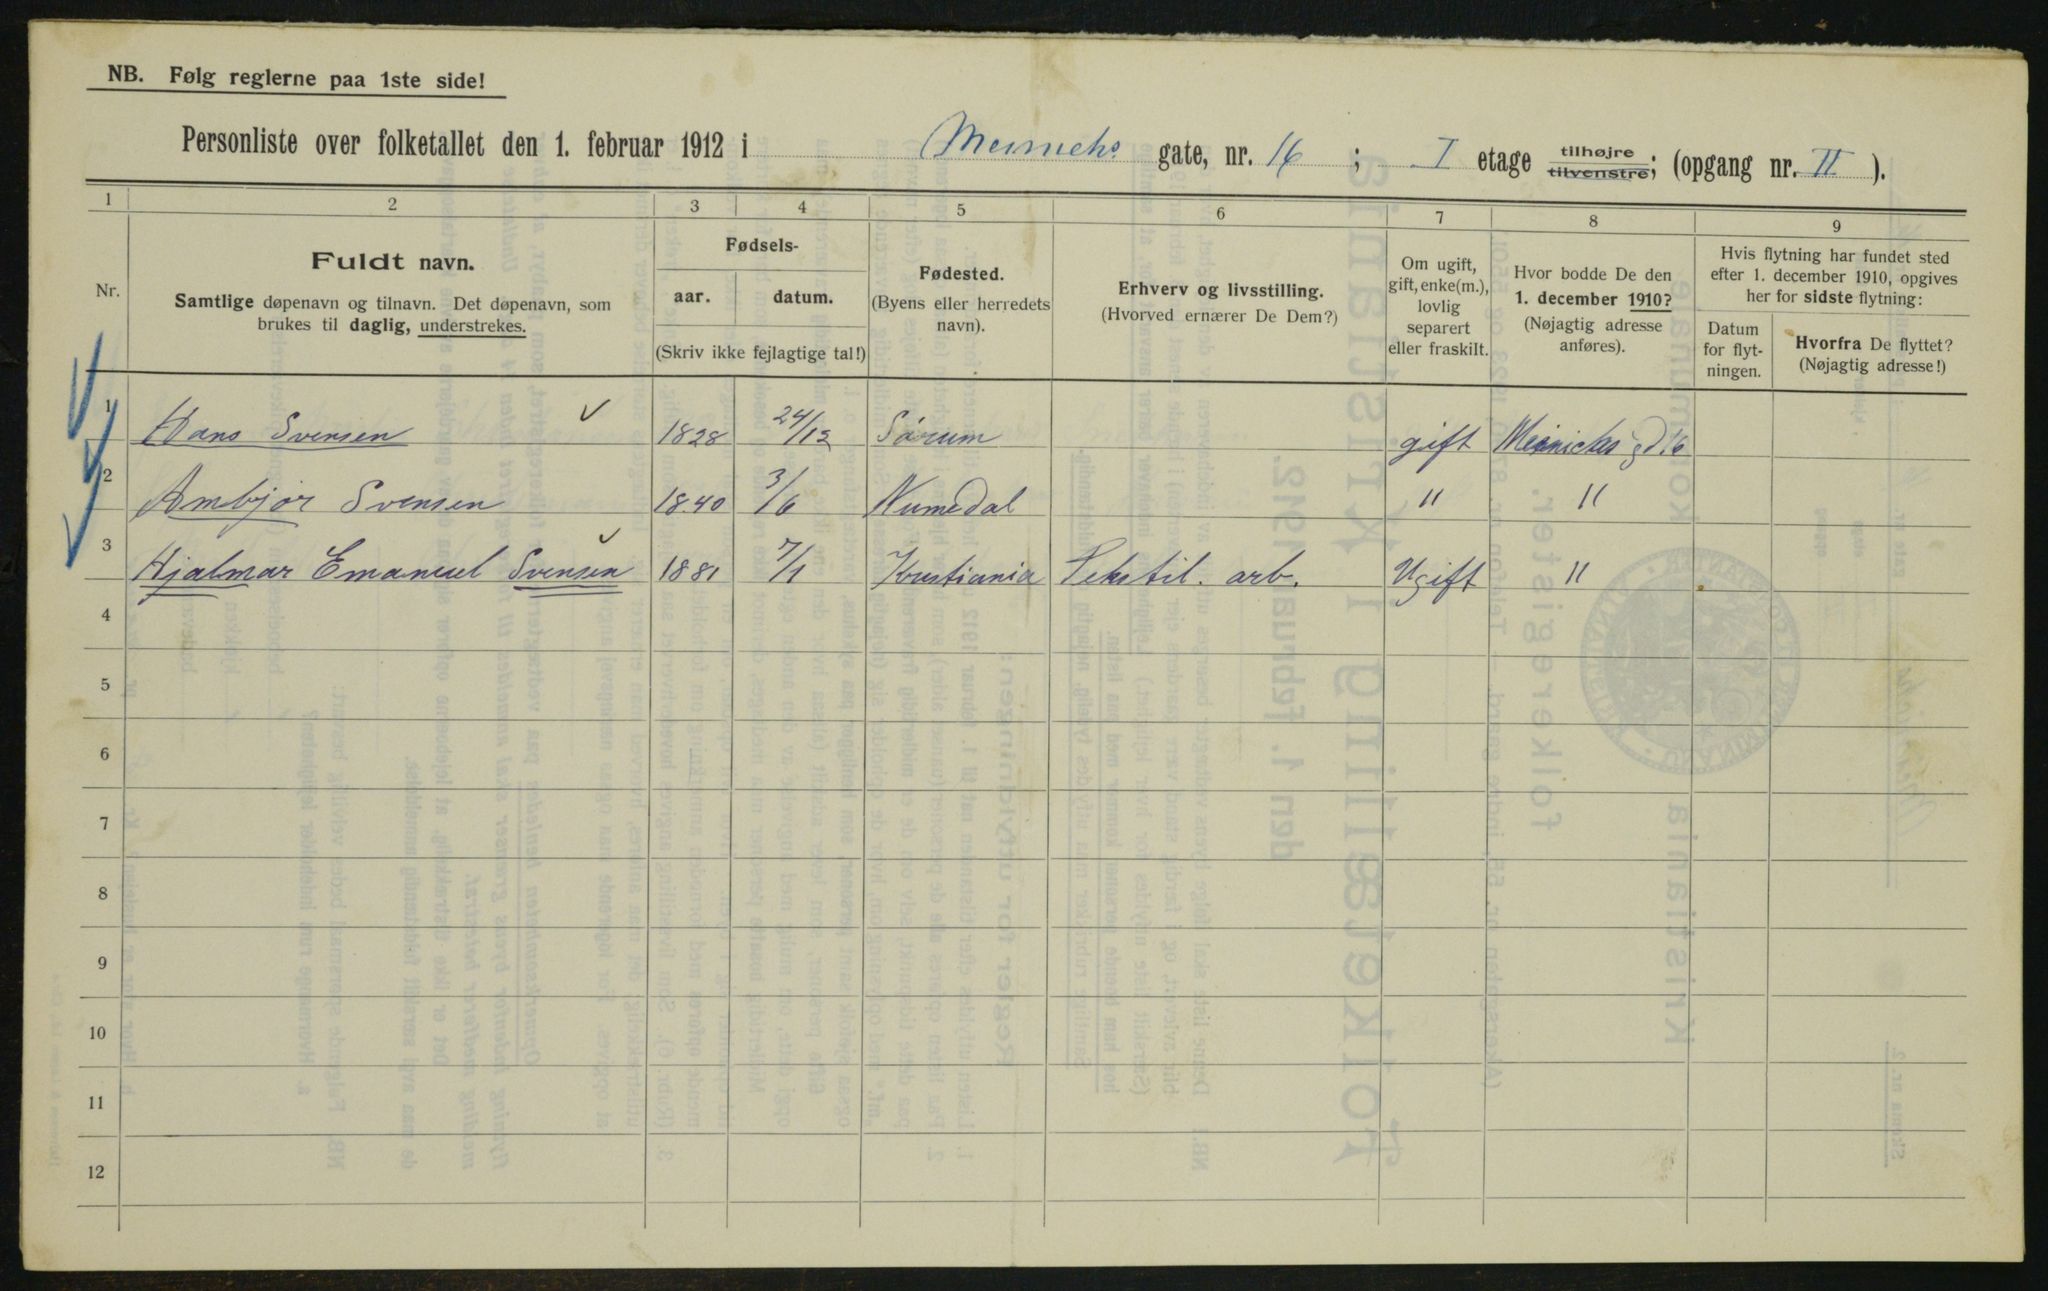 NB. Følg reglerne paa 1ste side!
Personliste over folketallet den 1. februar 1912 i Meinichs gate, nr. 16 ; I etage tilhøjre tilvenstre; (opgang nr. II ).
1 2 3 4 5 6 7 8 9
Nr.
Fuldt navn.
Samtlige døpenavn og tilnavn. Det døpenavn, som
brukes til daglig, understrekes.
Fødsels-
aar. datum.
(Skriv ikke fejlagtige tal!)
Fødested.
(Byens eller herredets
navn).
Erhverv og livsstilling.
(Hvorved ernærer De Dem?)
Om ugift,
gift, enke(m.),
lovlig
separert
eller fraskilt.
Hvor bodde De den
1. december 1910?
(Nøjagtig adresse
anføres).
Hvis flytning har fundet sted
efter 1. december 1910, opgives
her for sidste flytning:
Datum
for flyt-
ningen.
Hvorfra De flyttet?
(Nøjagtig adresse!)
1 Hans Svensen 1828 24/12 Sørum gift Meinichs gd 16
2 Ambjør Svensen 1840 3/6 Numedal " "
3 Hjalmar Emanuel Svensen 1881 7/1 Kristiania Tekstil. arb. Ugift "
4
5
6
7
8
9
10
11
12